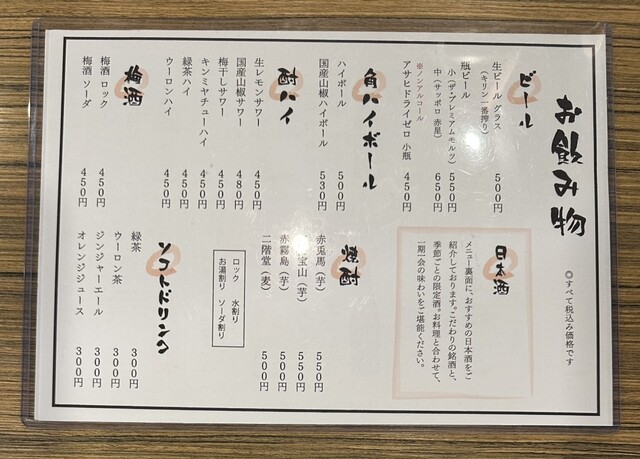 お飲み物
◎すべて税込み価格です
ビール
生ビール グラス 500円
(キリン一番搾り)
瓶ビール
小(ザ・プレミアムモルツ) 550円
中(サッポロ 赤星) 650円
※ノンアルコール
アサヒドライゼロ 小瓶 450円
角ハイボール
ハイボール 500円
国産山椒ハイボール 530円
酎ハイ
生レモンサワー 450円
国産山椒サワー 480円
梅干しサワー 450円
キンミヤチューハイ 450円
緑茶ハイ 450円
ウーロンハイ 450円
梅酒
梅酒 ロック 450円
梅酒 ソーダ 450円
日本酒
メニュー裏面に、おすすめの日本酒をご
紹介しております。こだわりの銘酒と、
季節ごとの限定酒。お料理と合わせて、
一期一会の味わいをご堪能ください。
焼酎
赤兎馬(芋) 550円
宝山(芋) 550円
赤霧島(芋) 500円
二階堂(麦) 500円
ロック 水割り
お湯割り ソーダ割り
ソフトドリンク
緑茶 300円
ウーロン茶 300円
ジンジャーエール 300円
オレンジジュース 300円